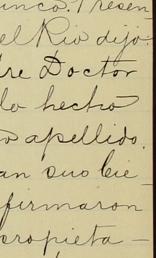 unco. Presen
el Rio dijo:
re Doctor
lo hecho
o apellido.
an suo bie
firmaron
cropieta-